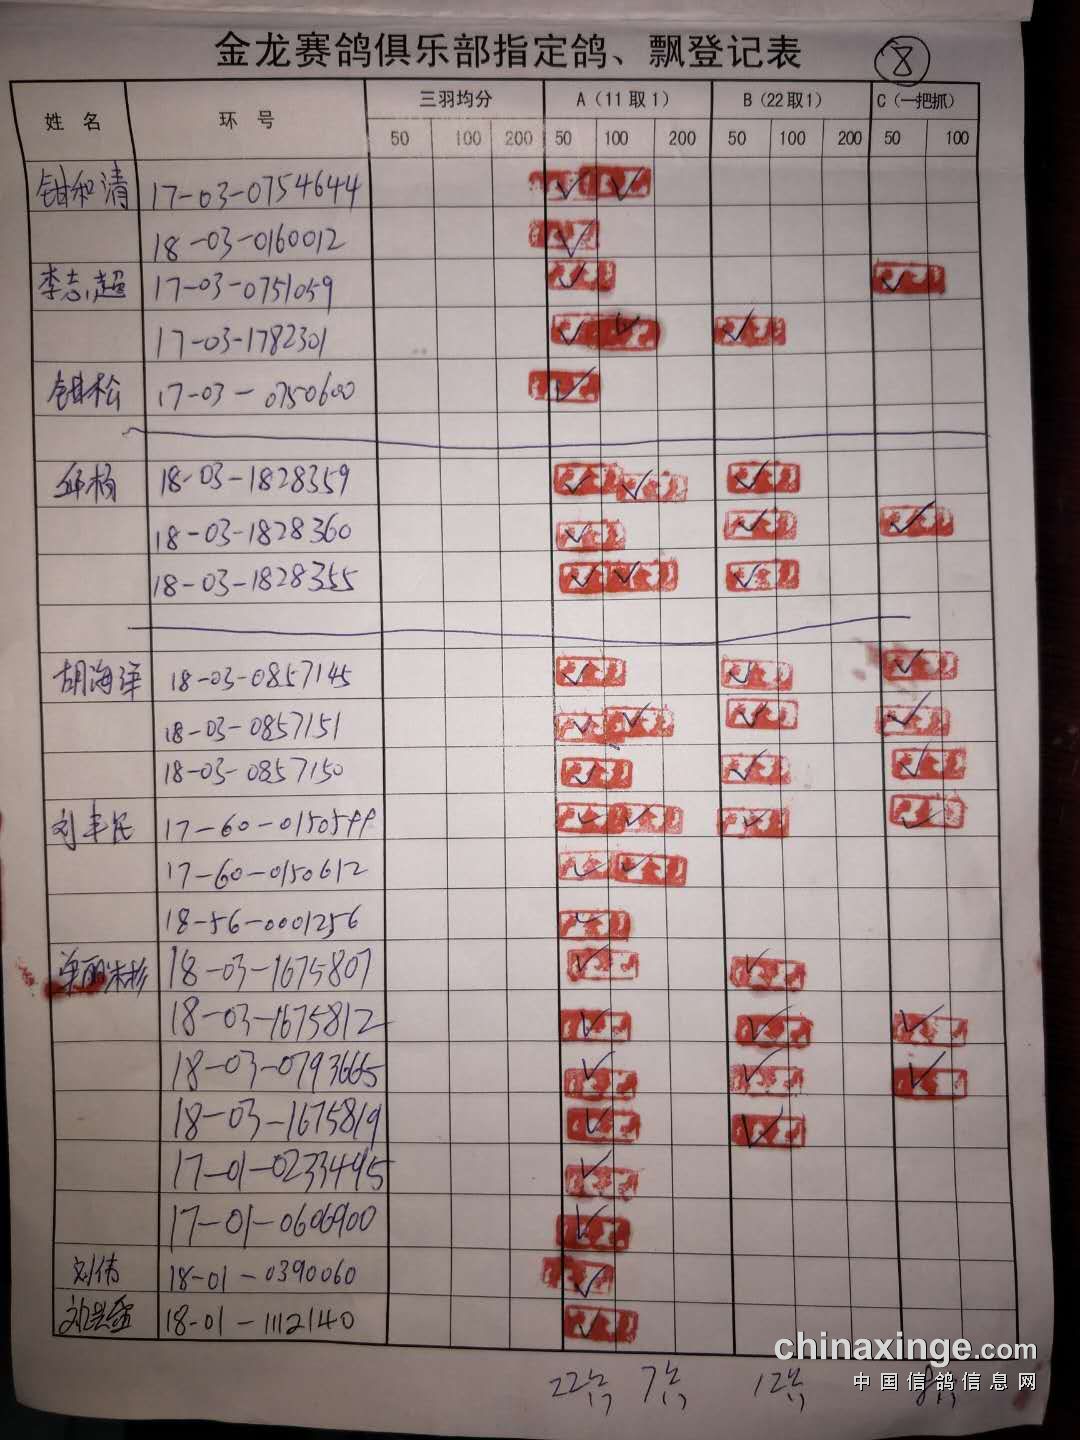 金龙赛鸽俱乐部指定鸽、飘登记表 8
姓 名 环 号 三羽均分 A（11取1） B（22取1） C（一把抓）
50 100 200 50 100 200 50 100 200 50 100
钳和清 17-03-0754644 ✓ ✓
18-03-0160012 ✓
李志超 17-03-0751059 ✓ ✓
17-03-1782301 ✓ ✓ ✓
钳松 17-03-0750600 ✓
邱杨 18-03-1828359 ✓ ✓ ✓
18-03-1828360 ✓ ✓ ✓
18-03-1828355 ✓ ✓ ✓
胡海洋 18-03-0857145 ✓ ✓ ✓
18-03-0857151 ✓ ✓ ✓ ✓
18-03-0857150 ✓ ✓ ✓
刘丰民 17-60-0150599 ✓ ✓ ✓ ✓
17-60-0150612 ✓ ✓
18-56-0001256 ✓
18-03-1675807 ✓ ✓
18-03-1675812 ✓ ✓ ✓
18-03-0793665 ✓ ✓ ✓
18-03-1675819 ✓ ✓
17-01-0233495 ✓
17-01-0606900 ✓
刘伟 18-01-0390060 ✓
18-01-1112140 ✓
22 7 12 8
chinaxinge.com
中国信鸽信息网